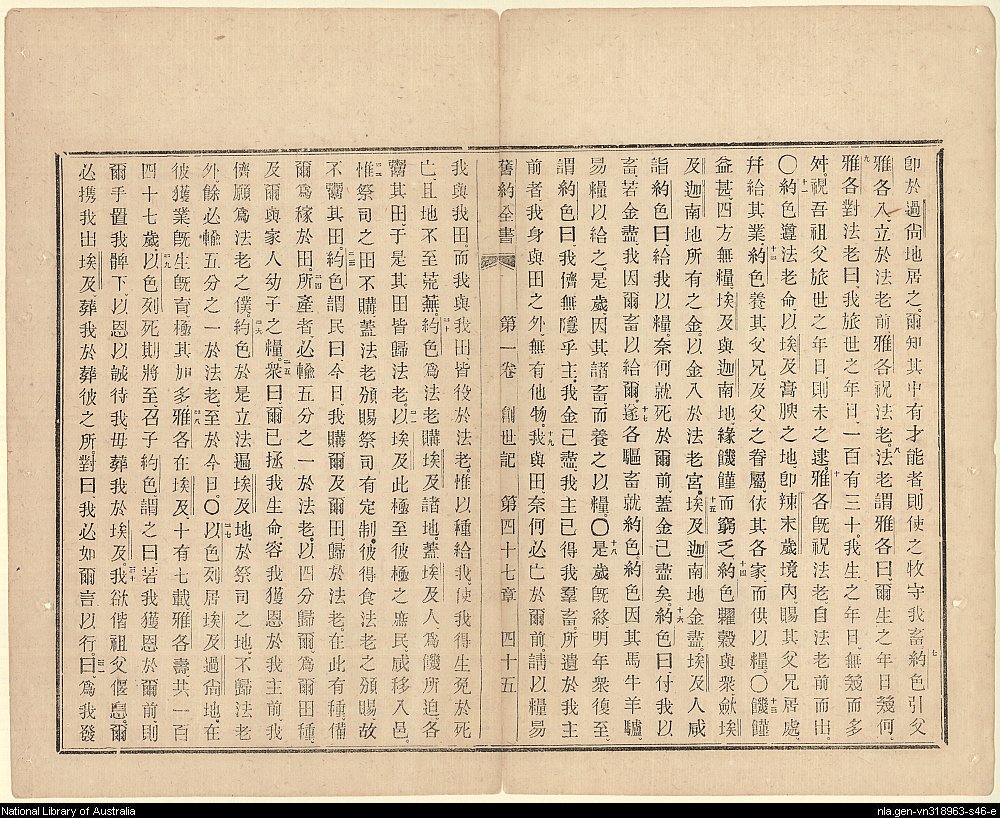 卽於過尙地居之爾知其中有才能者則使之牧守我畜七約色引父
雅各入立於法老前雅各祝法老八法老謂雅各曰爾生之年日幾何
九雅各對法老曰我旅世之年日一百有三十我生之年日無幾而多
舛視吾祖父旅世之年日則未之逮十雅各旣祝法老自法老前而出
〇十一約色遵法老命以埃及膏腴之地卽辣末歲境內賜其父兄居處
幷給其業十二約色養其父兄及父之眷屬依其各家而供以糧〇十三饑饉
益甚四方無糧埃及與迦南地緣饑饉而窮乏十四約色糶穀與衆歛埃
及迦南地所有之金以金入於法老宮十五埃及迦南地金盡埃及人咸
詣約色曰給我以糧奈何就死於爾前蓋金已盡矣十六約色曰付我以
畜若金盡我因爾畜以給爾十七遂各驅畜就約色約色因其馬牛羊驢
易糧以給之是歲因其諸畜而養之以糧〇十八是歲旣終明年衆復至
謂約色曰我儕無隱乎主我金已盡我主已得我羣畜所遺於我主
前者我身與田之外無有他物十九我與田奈何必亡於爾前請以糧易
舊約全書 第一卷 創世記 第四十七章 四十五
我與我田而我與我田皆役於法老惟以種給我使我得生免於死
亡且地不至荒蕪二十約色爲法老購埃及諸地蓋埃及人爲饑所迫各
鬻其田于是其田皆歸法老二一以埃及此極至彼極之庶民咸移入邑
二二惟祭司之田不購蓋法老頒賜祭司有定制彼得食法老之頒賜故
不鬻其田二三約色謂民曰今日我購爾及爾田歸於法老在此有種備
爾爲稼於田二四所產者必輸五分之一於法老以四分歸爾爲爾田種
及爾與家人幼子之糧二五衆曰爾已拯我生命容我獲恩於我主前我
儕願爲法老之僕二六約色於是立法遍埃及地於祭司之地不歸法老
外餘必輸五分之一於法老至於今日〇二七以色列居埃及過尙地在
彼獲業旣生旣育極其加多二八雅各在埃及十有七載雅各壽其一百
四十七歲二九以色列死期將至召子約色謂之曰若我獲恩於爾前則
爾手置我髀下以恩以誠待我毋葬我於埃及三十我欲偕祖父偃息爾
必携我出埃及葬我於葬彼之所對曰我必如爾言以行三一曰爲我發
National Library of Australia
nla.gen-vn318963-s46-e